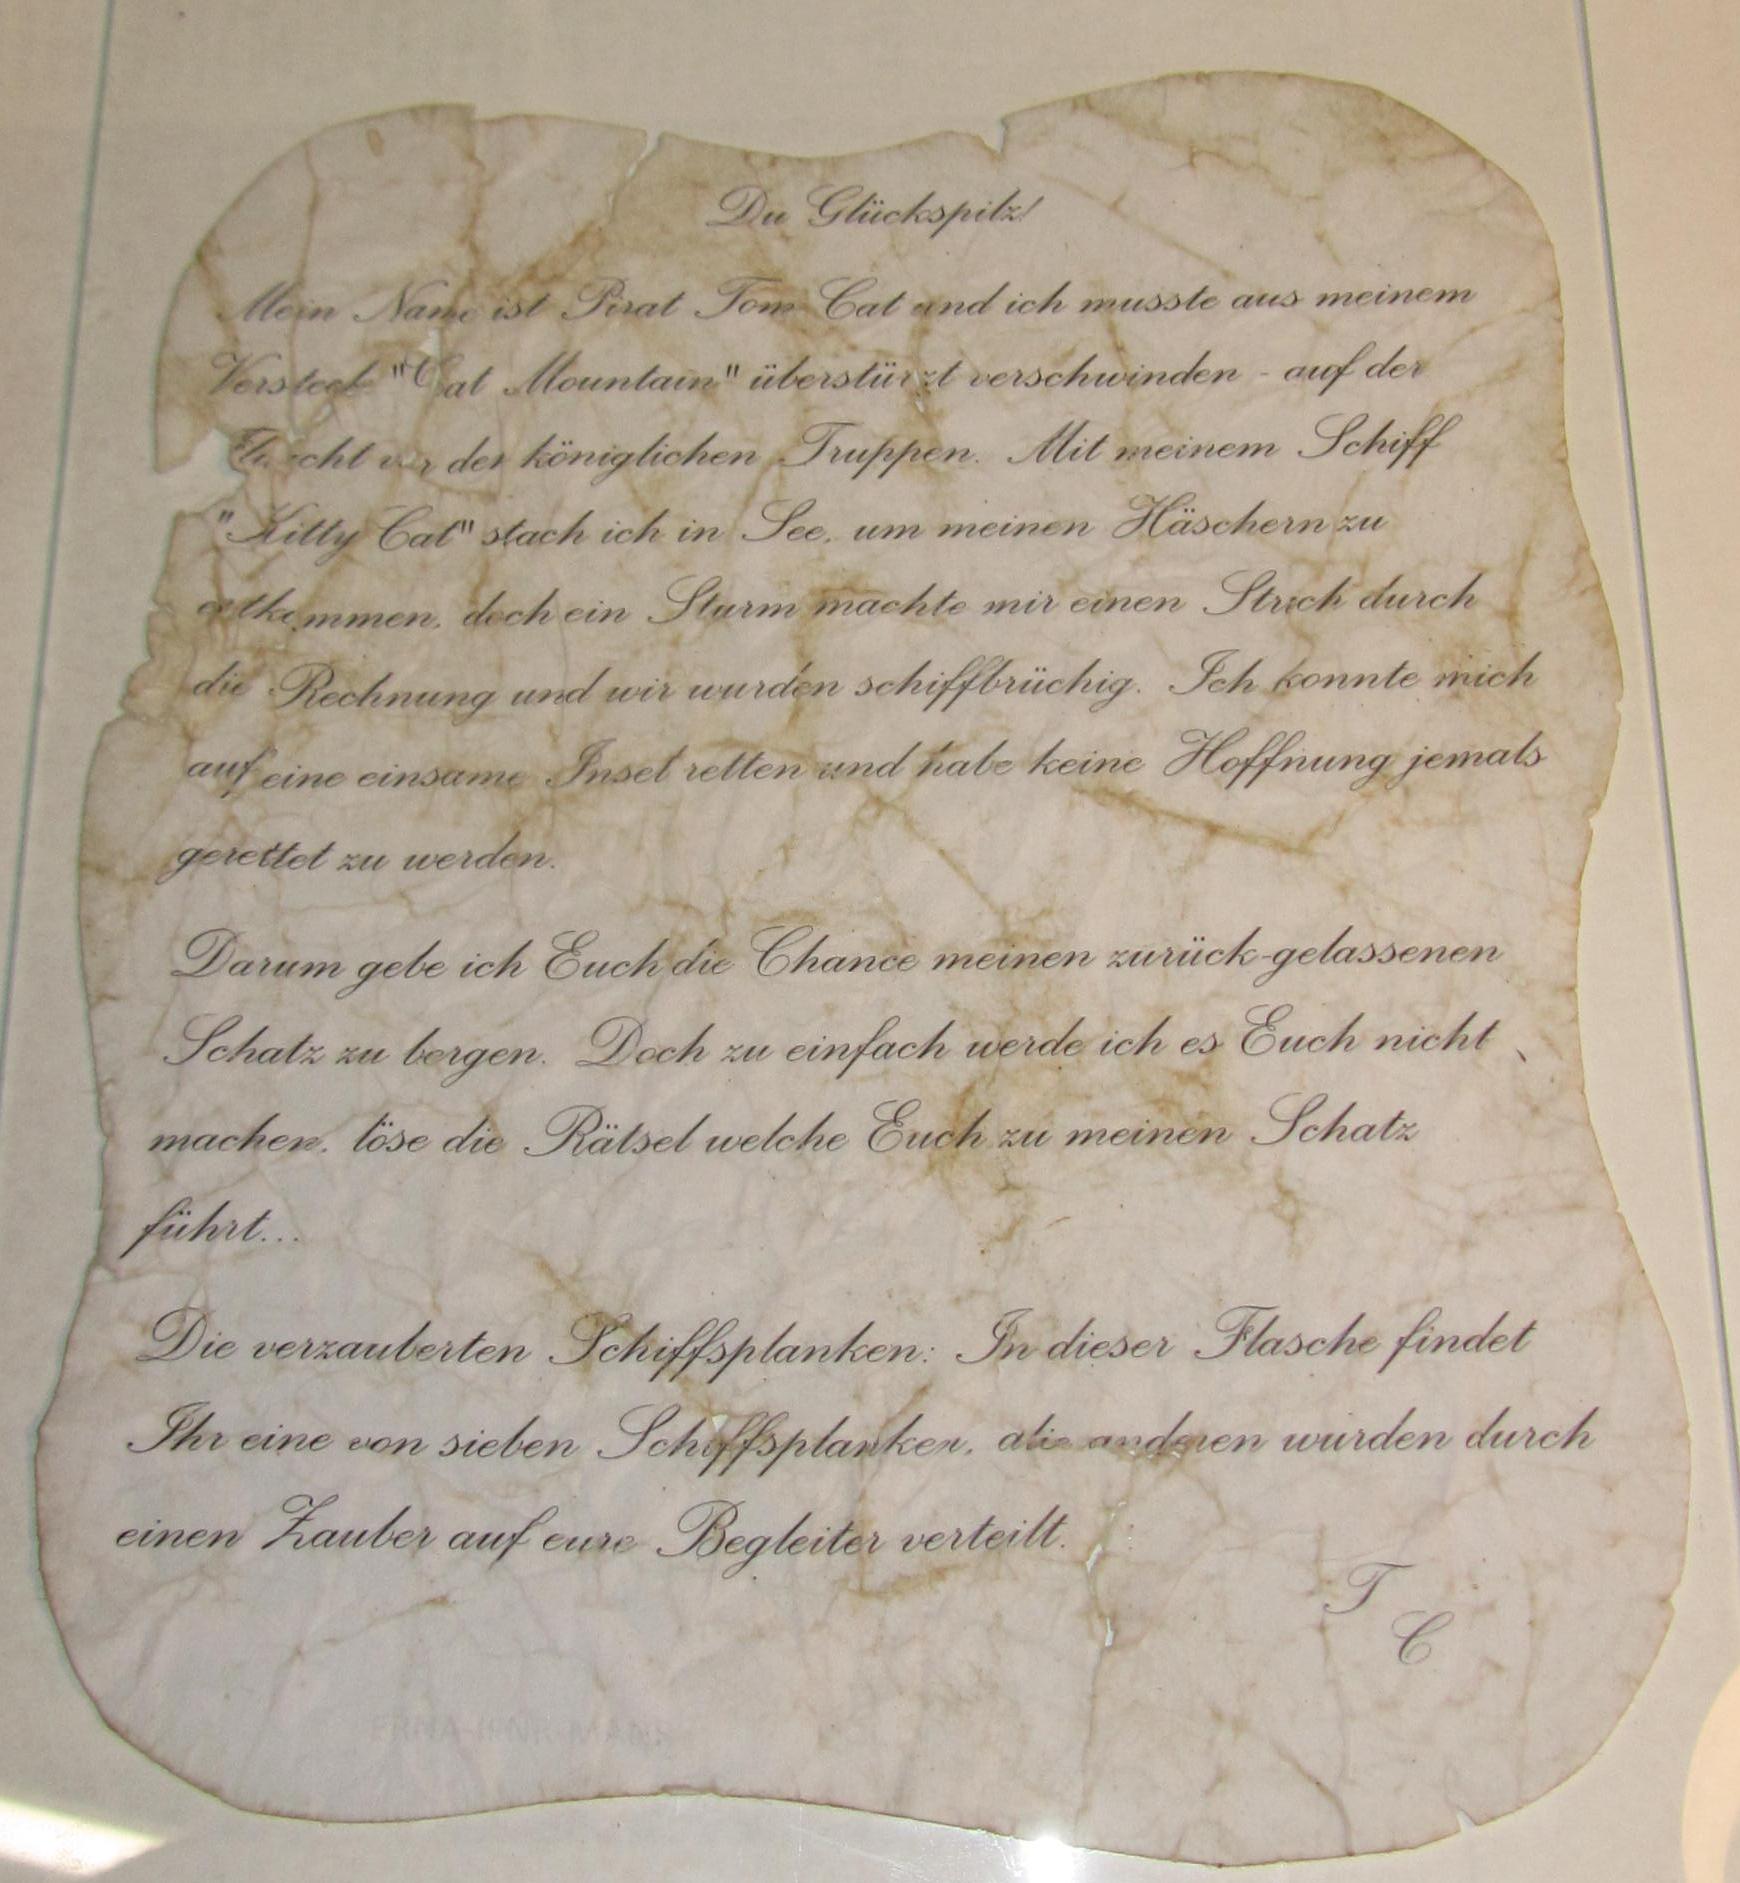 Du Glückspilz!
Mein Name ist Pirat Tom Cat und ich musste aus meinem
Versteck "Cat Mountain" überstürzt verschwinden - auf der
Flucht vor der königlichen Truppen. Mit meinem Schiff
"Kitty Cat" stach ich in See, um meinen Häschern zu
entkommen, doch ein Sturm machte mir einen Strich durch
die Rechnung und wir wurden schiffbrüchig. Ich konnte mich
auf eine einsame Insel retten und habe keine Hoffnung jemals
gerettet zu werden.
Darum gebe ich Euch die Chance meinen zurück-gelassenen
Schatz zu bergen. Doch zu einfach werde ich es Euch nicht
machen, löse die Rätsel welche Euch zu meinen Schatz
führt...
Die verzauberten Schiffsplanken: In dieser Flasche findet
Ihr eine von sieben Schiffsplanken, die anderen wurden durch
einen Zauber auf eure Begleiter verteilt.
T
C